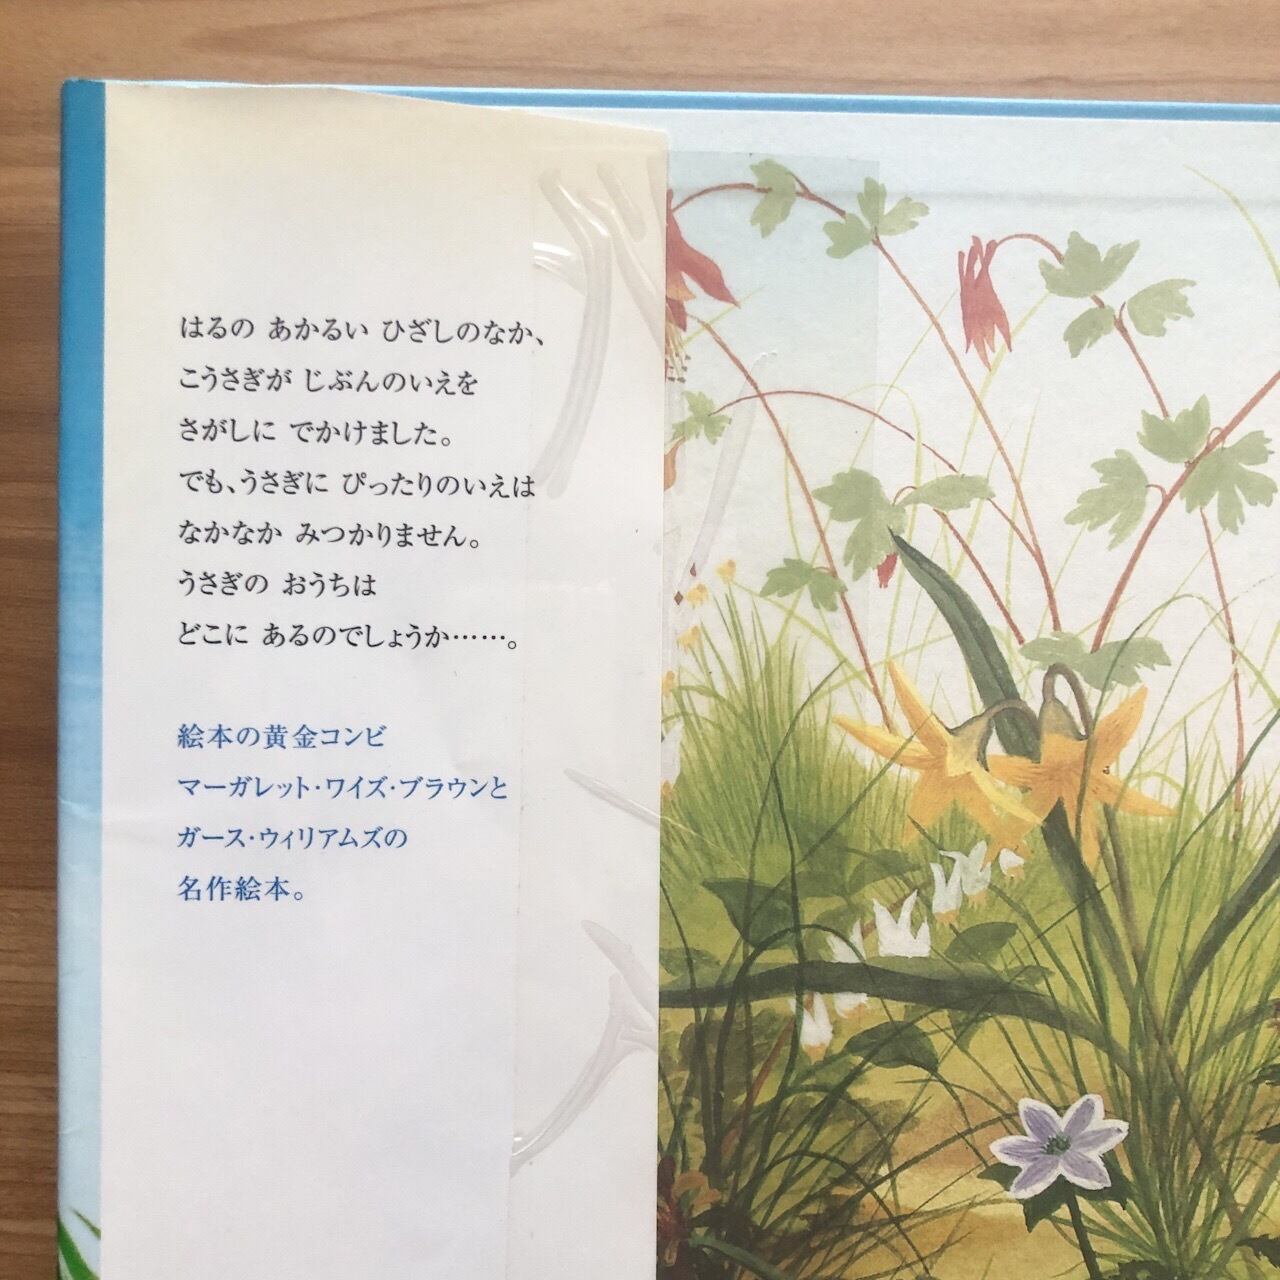 はるの あかるい ひざしのなか、
こうさぎが じぶんのいえを
さがしに でかけました。
でも、うさぎに ぴったりのいえは
なかなか みつかりません。
うさぎの おうちは
どこに あるのでしょうか……。
絵本の黄金コンビ
マーガレット・ワイズ・ブラウンと
ガース・ウィリアムズの
名作絵本。